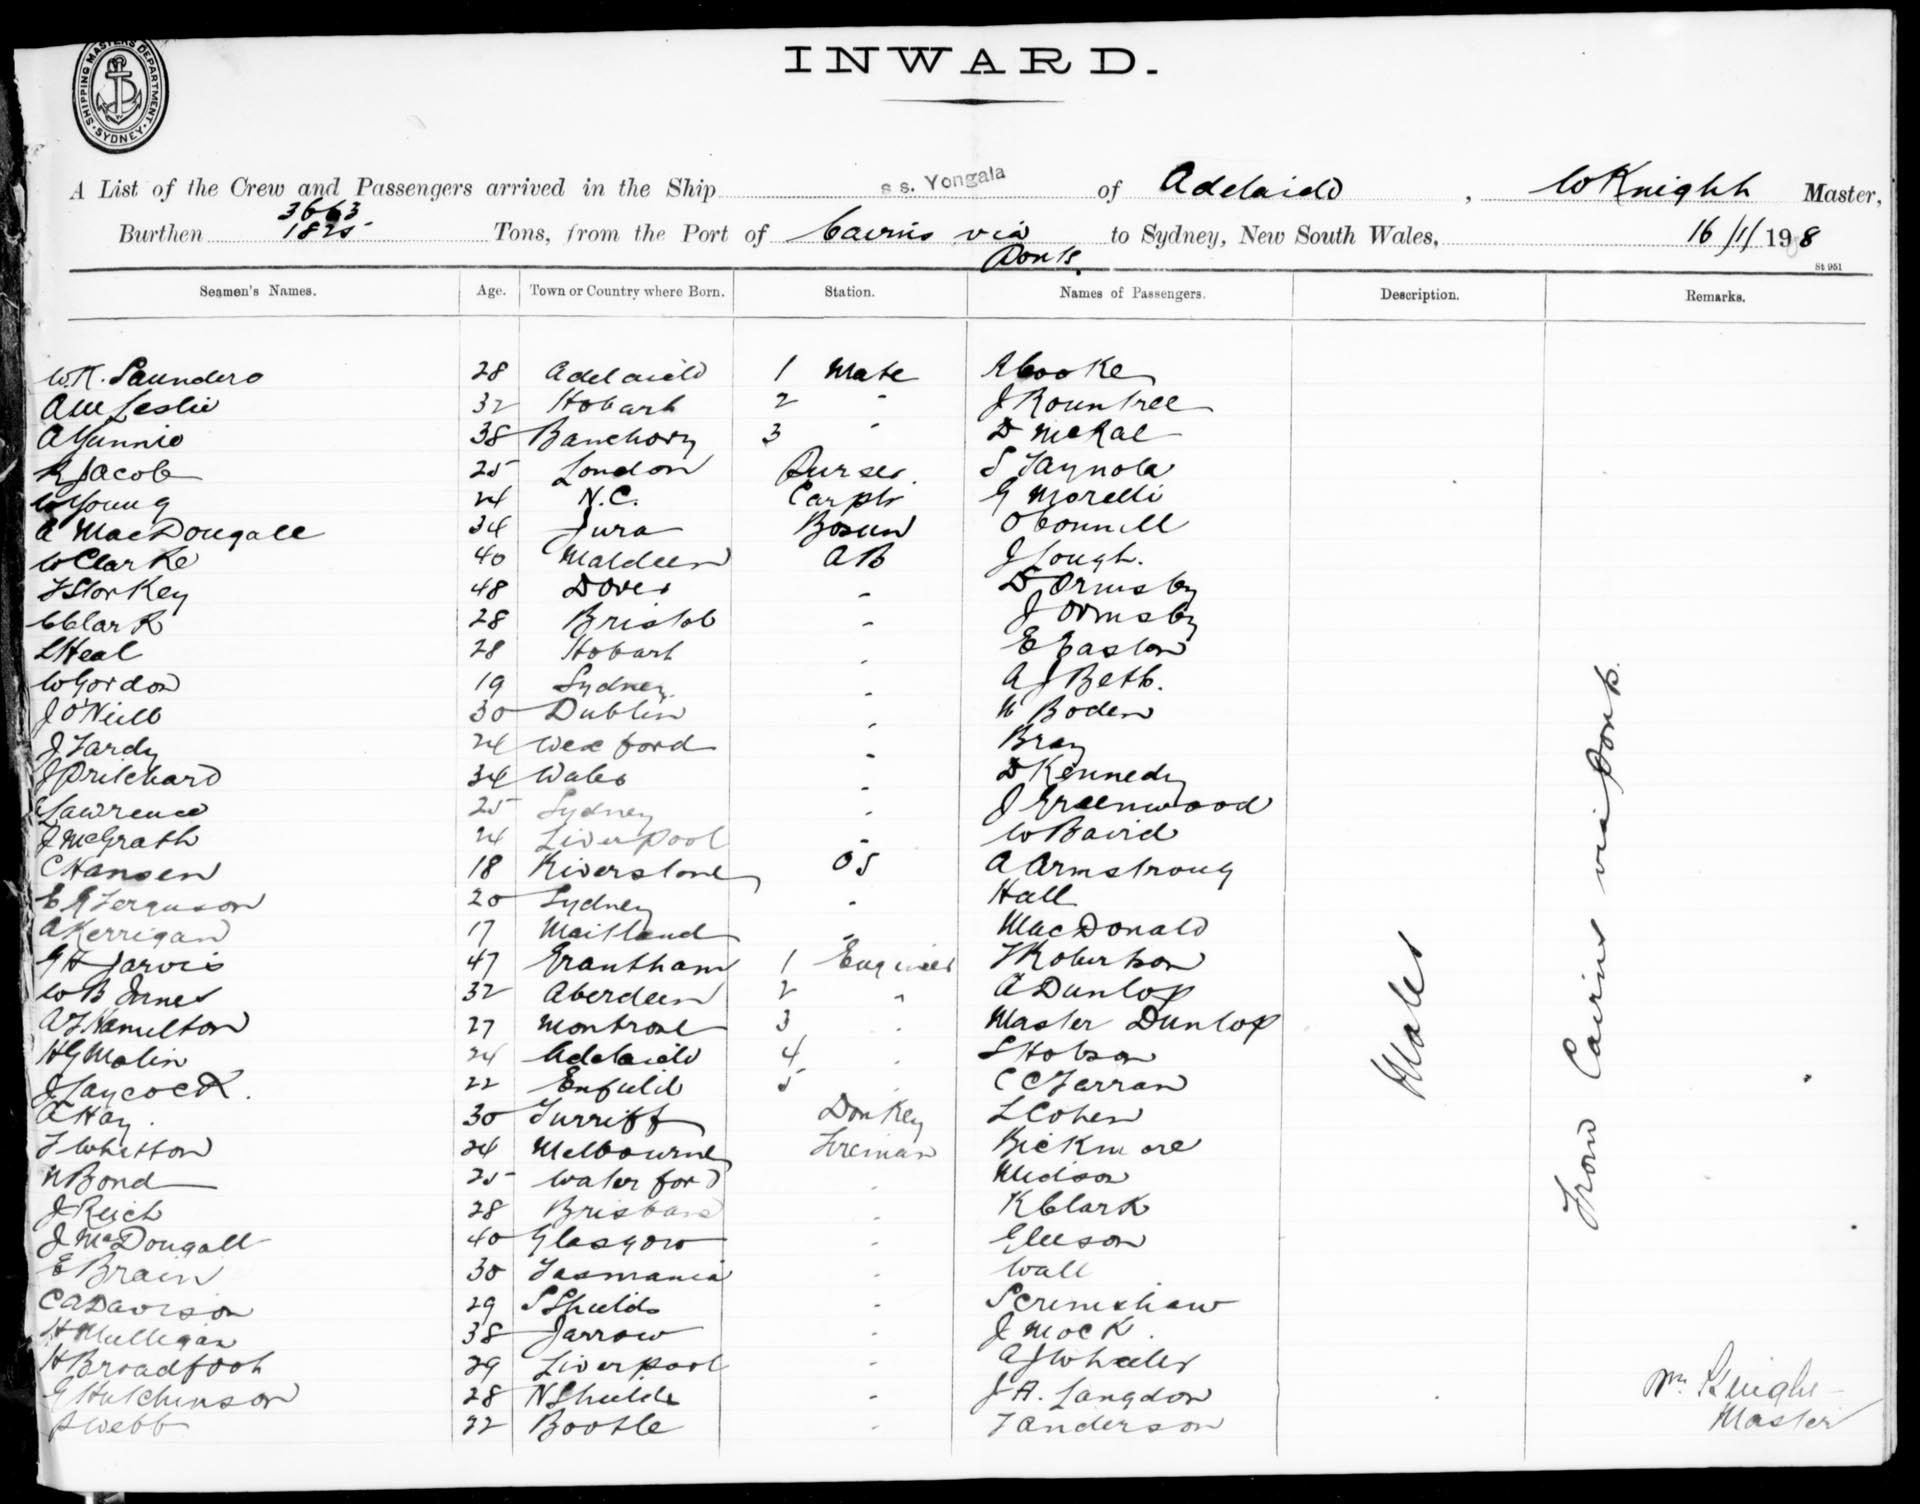 SHIPPING MASTERS DEPARTMENT · SYDNEY ·
INWARD.
A List of the Crew and Passengers arrived in the Ship s s. Yongala of Adelaide, W Knight Master,
3663
Burthen 1825 Tons, from the Port of Cairns via Ports. to Sydney, New South Wales, 16/1/1908
St 951
Seamen's Names. Age. Town or Country where Born. Station. Names of Passengers. Description. Remarks.
W.K. Saunders 28 Adelaide 1 Mate A Cooke
AM Leslie 32 Hobart 2 " J Rountree
A Yunnie 38 Banchory 3 " D McRae
R Jacob 25 London Purser. S
W Young 24 N.C. Carptr G Morelli
A MacDougall 34 Jura Bosun O Connell
W Clarke 40 AB J Lough.
F Storkey 48 Dover " D Ormsby
C Clark 28 Bristol " J Ormsby
L Heal 28 Hobart " E Easton
W Gordon 19 Sydney. " A J Beth.
J O'Neill 30 Dublin " W Boden
J Fardy 24 Wexford " Bray
J Pritchard 34 Wales " D Kennedy
Lawrence 25 Sydney " J Greenwood
J McGrath 24 Liverpool " W Bavid
C Hansen 18 Riverstone OS A Armstrong
E G Ferguson 20 Sydney " Hall
A Kerrigan 17 Maitland " MacDonald
G H Jarvis 47 Grantham 1 Engineer F Robertson
W B Innes 32 Aberdeen 2 " A Dunlop
A F Hamilton 27 Montrose 3 " Master Dunlop
H G Malin 24 Adelaide 4 " S Hobson
J Laycock. 22 Enfield 5 " C C Farran
A Hay. 30 Turriff Donkey L Cohen
F Whitton 24 Melbourne Fireman Bickmore
N Bond 25 Waterford " Midson
J Reich 28 Brisbane " K Clark
J McDougall 40 Glasgow " Gleeson
E Brain 30 Tasmania " Wall
C A Davison 29 S Shields " Scrimshaw
H Mulligan 38 Jarrow " J Mock.
H Broadfoot 29 Liverpool " A J Wheeler
G Hutchinson 28 N Shields " J A. Langdon
S Webb 22 Bootle " F Anderson
Males
From Cairns via Ports.
Wm Knight
Master